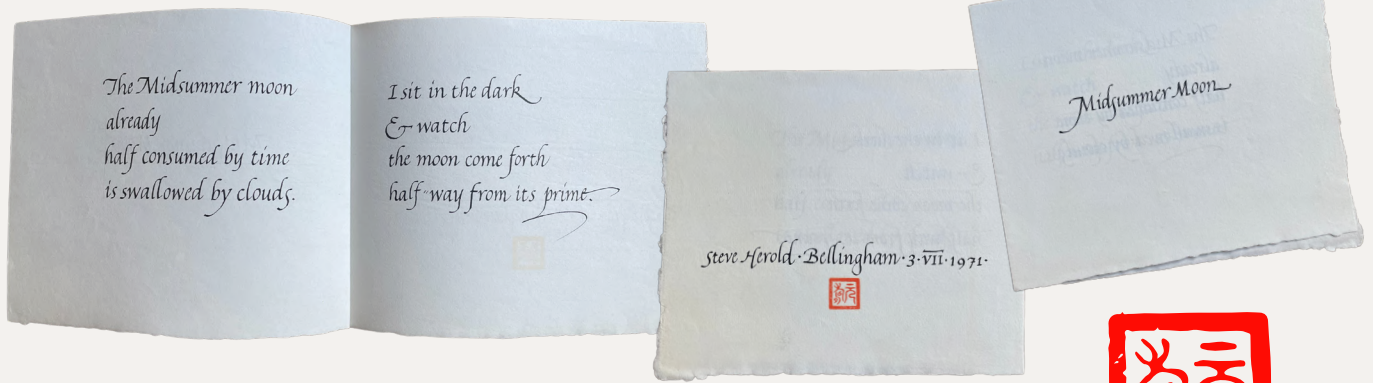 The Midsummer moon
already
half consumed by time
is swallowed by clouds.
I sit in the dark
& watch
the moon come forth
half-way from its prime.
Steve Herold · Bellingham · 3 · VII · 1971 ·
Midsummer Moon